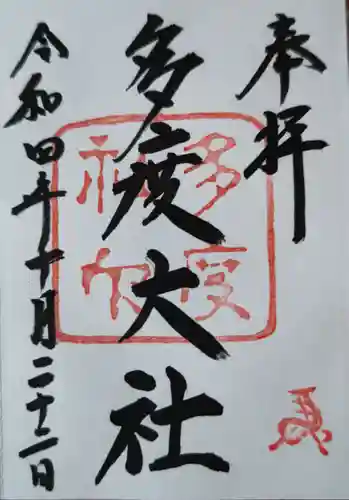 奉拝
多度大社
令和四年十月二十二日
多度
神社